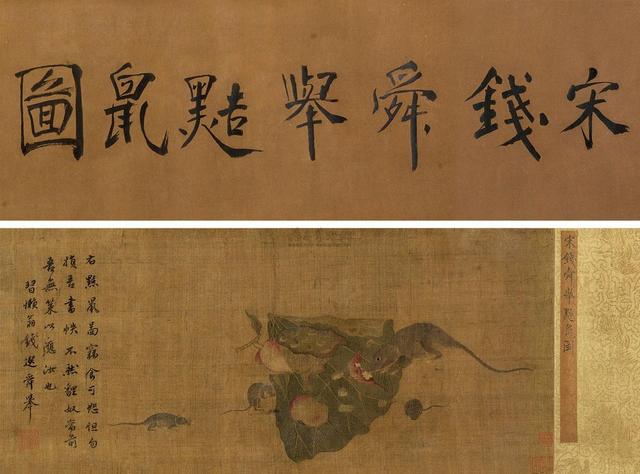 宋錢舜舉黠鼠圖
宋錢舜舉黠鼠圖
右黠鼠圖竊食可恕但勿
損吾書帙不然貍奴當前
吾無策以應汝也
習懶翁錢選舜舉